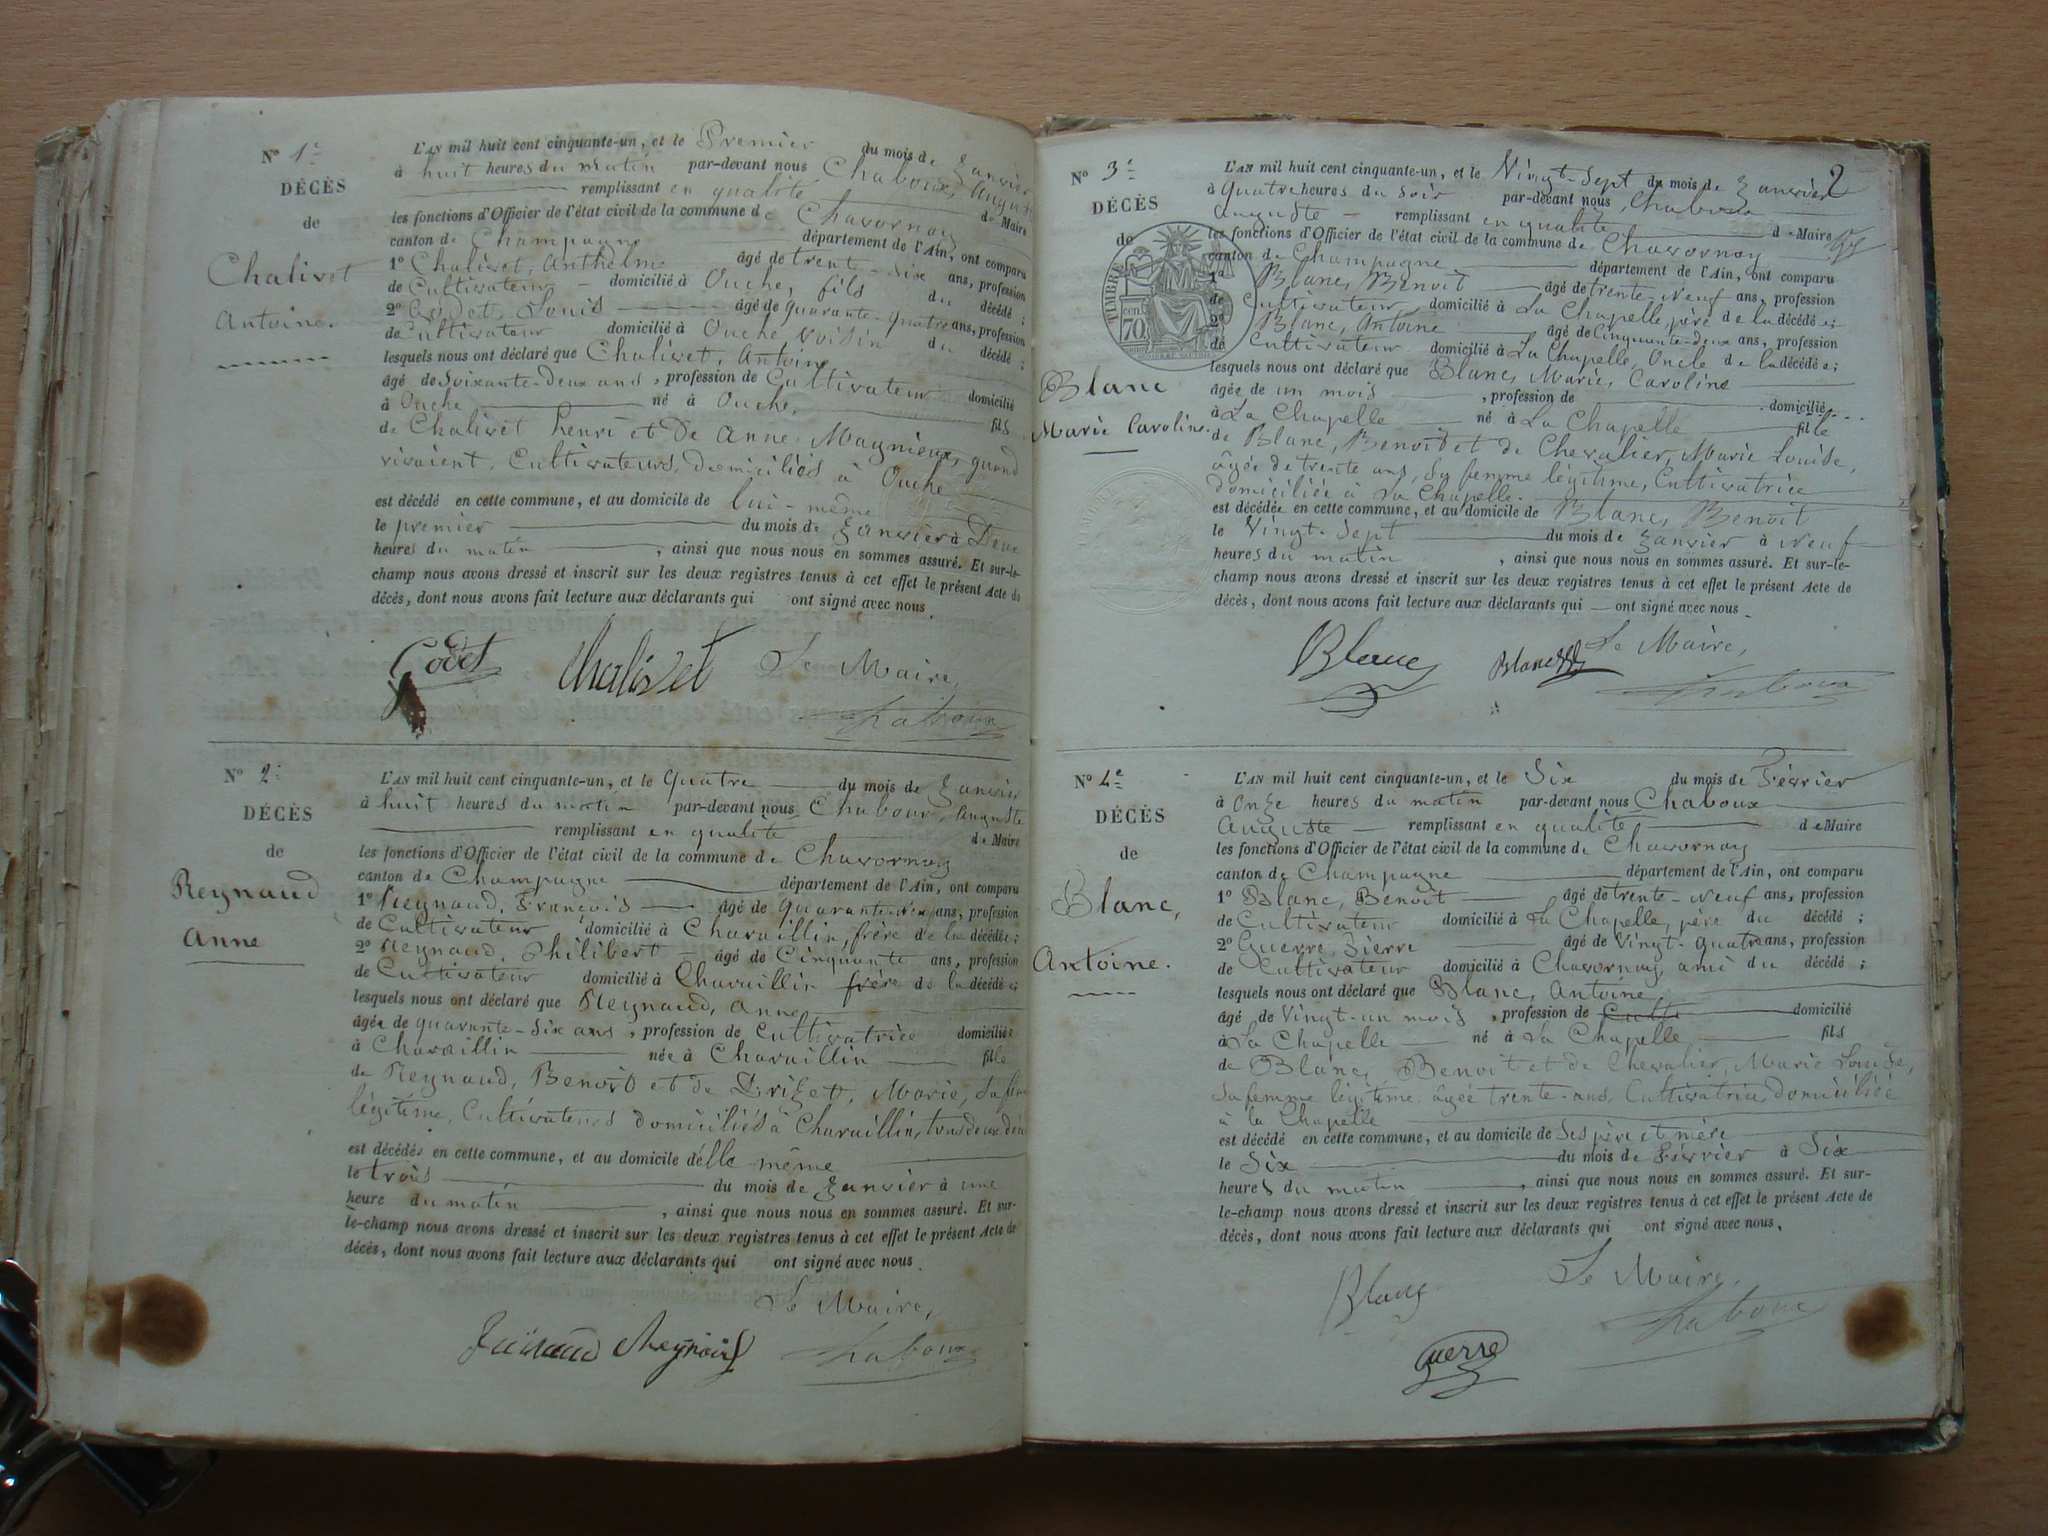 N° 1er
DÉCÈS
de
Chalivet
Antoine.
L'AN mil huit cent cinquante-un, et le Premier du mois de Janvier
à huit heures du matin par-devant nous Chaboux, Auguste
remplissant en qualité de Maire
les fonctions d'Officier de l'état civil de la commune de Chavornay
canton de Champagne département de l'Ain, ont comparu
1° Chalivet, Anthelme âgé de trente-six ans, profession
de Cultivateur domicilié à Ouche, fils du décédé ;
2° Godet, Louis âgé de quarante-quatre ans, profession
de Cultivateur domicilié à Ouche voisin du décédé ;
lesquels nous ont déclaré que Chalivet, Antoine
âgé de Soixante-Deux ans, profession de Cultivateur domicilié
à Ouche né à Ouche, fils
de Chalivet henri et de anne Magnieux, quand
vivaient, Cultivateurs, domiciliés à Ouche
est décédé en cette commune, et au domicile de lui-même
le premier du mois de Janvier à Deux
heures du matin, ainsi que nous nous en sommes assuré. Et sur-le-
champ nous avons dressé et inscrit sur les deux registres tenus à cet effet le présent Acte de
décès, dont nous avons fait lecture aux déclarants qui ont signé avec nous.
Godet Chalivet Le Maire,
Chaboux
N° 2e
DÉCÈS
de
Reynaud
Anne
L'AN mil huit cent cinquante-un, et le Quatre du mois de Janvier
à huit heures du matin par-devant nous Chaboux, Auguste
remplissant en qualité de Maire
les fonctions d'Officier de l'état civil de la commune de Chavornay
canton de Champagne département de l'Ain, ont comparu
1° Reynaud, François âgé de quarante-neuf ans, profession
de Cultivateur domicilié à Charaillin, frère de la décédée ;
2° Reynaud, Philibert âgé de Cinquante ans, profession
de Cultivateur domicilié à Charaillin frère de la décédée ;
lesquels nous ont déclaré que Reynaud, anne
âgée de quarante-six ans, profession de Cultivatrice domiciliée
à Charaillin née à Charaillin fille
de Reynaud, Benoît et de Brizet, Marie, sa femme
légitime, Cultivateurs domiciliés à Charaillin, tous deux
est décédée en cette commune, et au domicile d'elle même
le trois du mois de Janvier à une
heure du matin, ainsi que nous nous en sommes assuré. Et sur-
le-champ nous avons dressé et inscrit sur les deux registres tenus à cet effet le présent Acte de
décès, dont nous avons fait lecture aux déclarants qui ont signé avec nous.
Le Maire,
Chaboux
2
N° 3e
DÉCÈS
de
TIMBRE
70
Blanc
Marie Caroline.
L'AN mil huit cent cinquante-un, et le Vingt-Sept du mois de Janvier
à quatre heures du soir par-devant nous, Chaboux
Auguste remplissant en qualité de Maire
les fonctions d'Officier de l'état civil de la commune de Chavornay
canton de Champagne département de l'Ain, ont comparu
1° Blanc, Benoit âgé de trente-neuf ans, profession
de Cultivateur domicilié à La Chapelle, père de la décédée ;
2° Blanc, Antoine âgé de Cinquante-deux ans, profession
de Cultivateur domicilié à La Chapelle, Oncle de la décédée ;
lesquels nous ont déclaré que Blanc, Marie, Caroline
âgée de un mois, profession de domicilié
à La Chapelle né à La Chapelle fille
de Blanc, Benoit et de Chevalier, Marie Louise,
âgée de trente ans, sa femme légitime, Cultivatrice
domiciliée à La Chapelle.
est décédée en cette commune, et au domicile de Blanc, Benoit
le Vingt-Sept du mois de Janvier à neuf
heures du matin, ainsi que nous nous en sommes assuré. Et sur-le-
champ nous avons dressé et inscrit sur les deux registres tenus à cet effet le présent Acte de
décès, dont nous avons fait lecture aux déclarants qui ont signé avec nous.
Blanc Blanc Le Maire,
Chaboux
N° 4e
DÉCÈS
de
Blanc,
Antoine.
L'AN mil huit cent cinquante-un, et le Six du mois de Février
à Onze heures du matin par-devant nous Chaboux
Auguste remplissant en qualité de Maire
les fonctions d'Officier de l'état civil de la commune de Chavornay
canton de Champagne département de l'Ain, ont comparu
1° Blanc, Benoit âgé de trente-neuf ans, profession
de Cultivateur domicilié à La Chapelle, père du décédé ;
2° Guerre, Pierre âgé de Vingt-quatre ans, profession
de Cultivateur domicilié à Chavornay, ami du décédé ;
lesquels nous ont déclaré que Blanc, Antoine
âgé de Vingt-un mois, profession de domicilié
à La Chapelle né à La Chapelle fils
de Blanc, Benoit et de Chevalier, Marie Louise,
sa femme légitime âgée trente-ans, Cultivatrice, domiciliée
à la Chapelle
est décédé en cette commune, et au domicile de Ses père et mère
le Six du mois de Février à Six
heures du matin, ainsi que nous nous en sommes assuré. Et sur-
le-champ nous avons dressé et inscrit sur les deux registres tenus à cet effet le présent Acte de
décès, dont nous avons fait lecture aux déclarants qui ont signé avec nous.
Blanc Le Maire,
Chaboux
Guerre